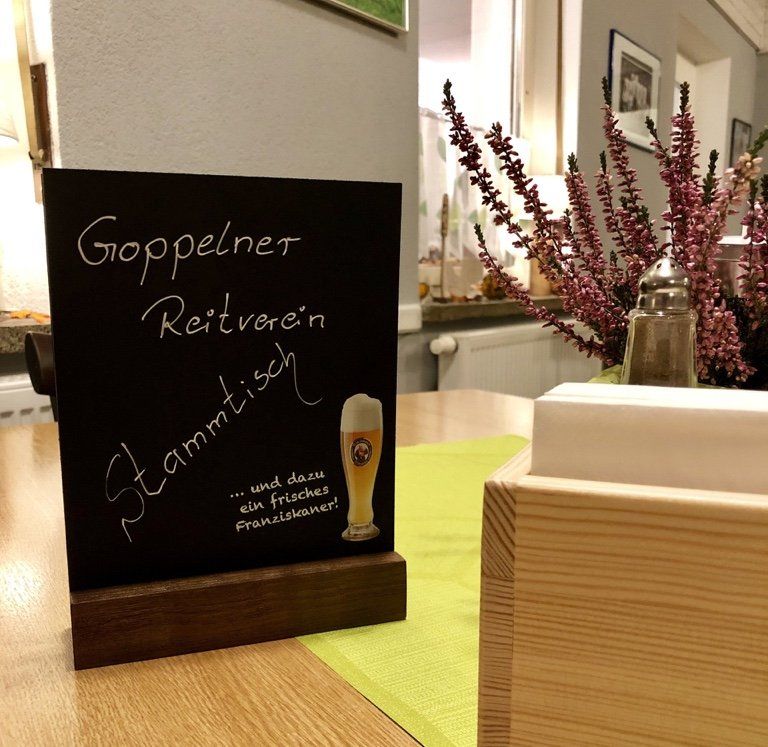 Goppelner
Reitverein
Stammtisch
... und dazu
ein frisches
Franziskaner!